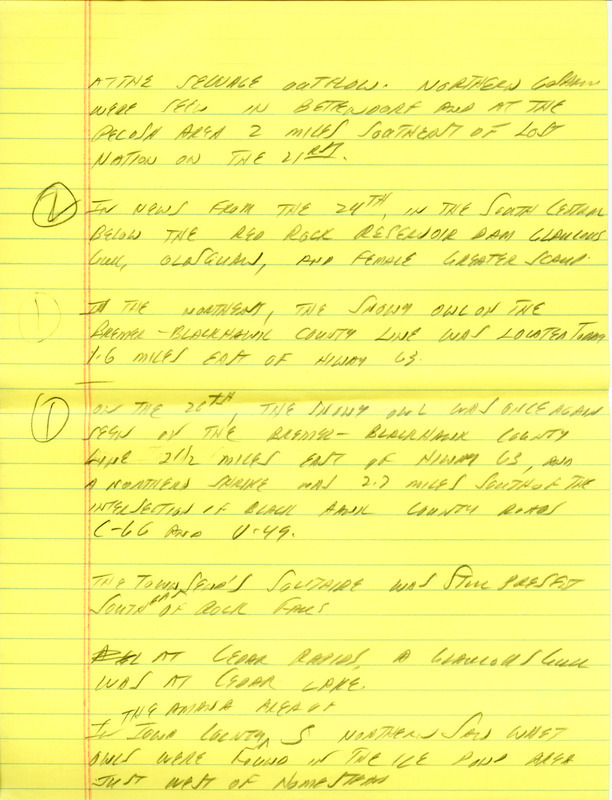 AT THE SEWAGE OUTFLOW. NORTHERN
WERE SEEN IN BETTENDORF AND AT THE
AREA 2 MILES SOUTHEAST OF LOST
NATION ON THE 21RST.
2 IN NEWS FROM THE 24TH, IN THE SOUTH CENTRAL
BELOW THE RED ROCK RESERVOIR DAM GLAUCOUS
GULL, OLDSQUAW, AND FEMALE GREATER SCAUP.
1 IN THE NORTHEAST, THE SNOWY OWL ON THE
BREMER-BLACKHAWK COUNTY LINE WAS LOCATED TODAY
1.6 MILES EAST OF HIWAY 63.
1 ON THE 26TH, THE SNOWY OWL WAS ONCE AGAIN
SEEN ON THE BREMER-BLACKHAWK COUNTY
LINE 2 1/2 MILES EAST OF HIWAY 63, AND
A NORTHERN SHRIKE WAS 2.7 MILES SOUTH OF THE
INTERSECTION OF BLACK HAWK COUNTY ROADS
C-66 AND V-49.
THE TOWNSEND'S SOLITAIRE WAS STILL PRESENT
SOUTH OF ROCK FALLS
AT CEDAR RAPIDS, A GLAUCOUS GULL
WAS AT CEDAR LAKE.
THE AMANA AREA OF
IN IOWA COUNTY, 5 NORTHERN SAW WHET
OWLS WERE FOUND IN THE ICE POND AREA
JUST WEST OF HOMESTEAD